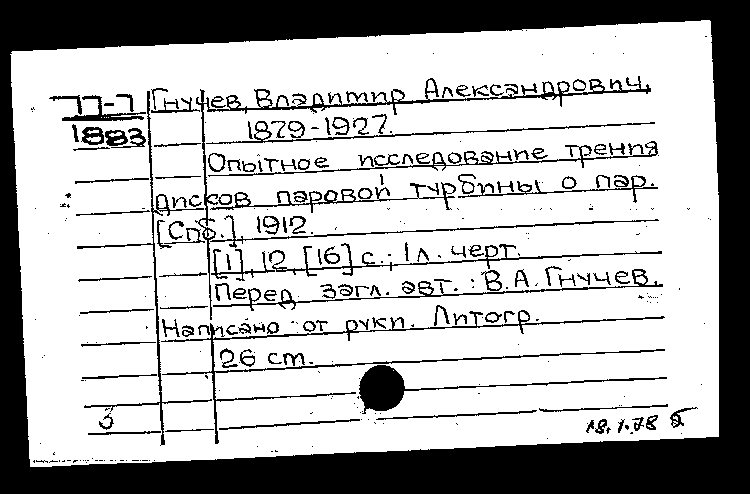 77-7 Гнучев, Владимир Александрович,
1883 1879-1927.
Опытное исследование трения
дисков паровой турбины о пар.
[Спб.], 1912.
[1], 12, [16] с.; 1 л. черт.
Перед загл. авт.: В.А. Гнучев.
Написано от руки. Литогр.
26 см.
3
18.1.78